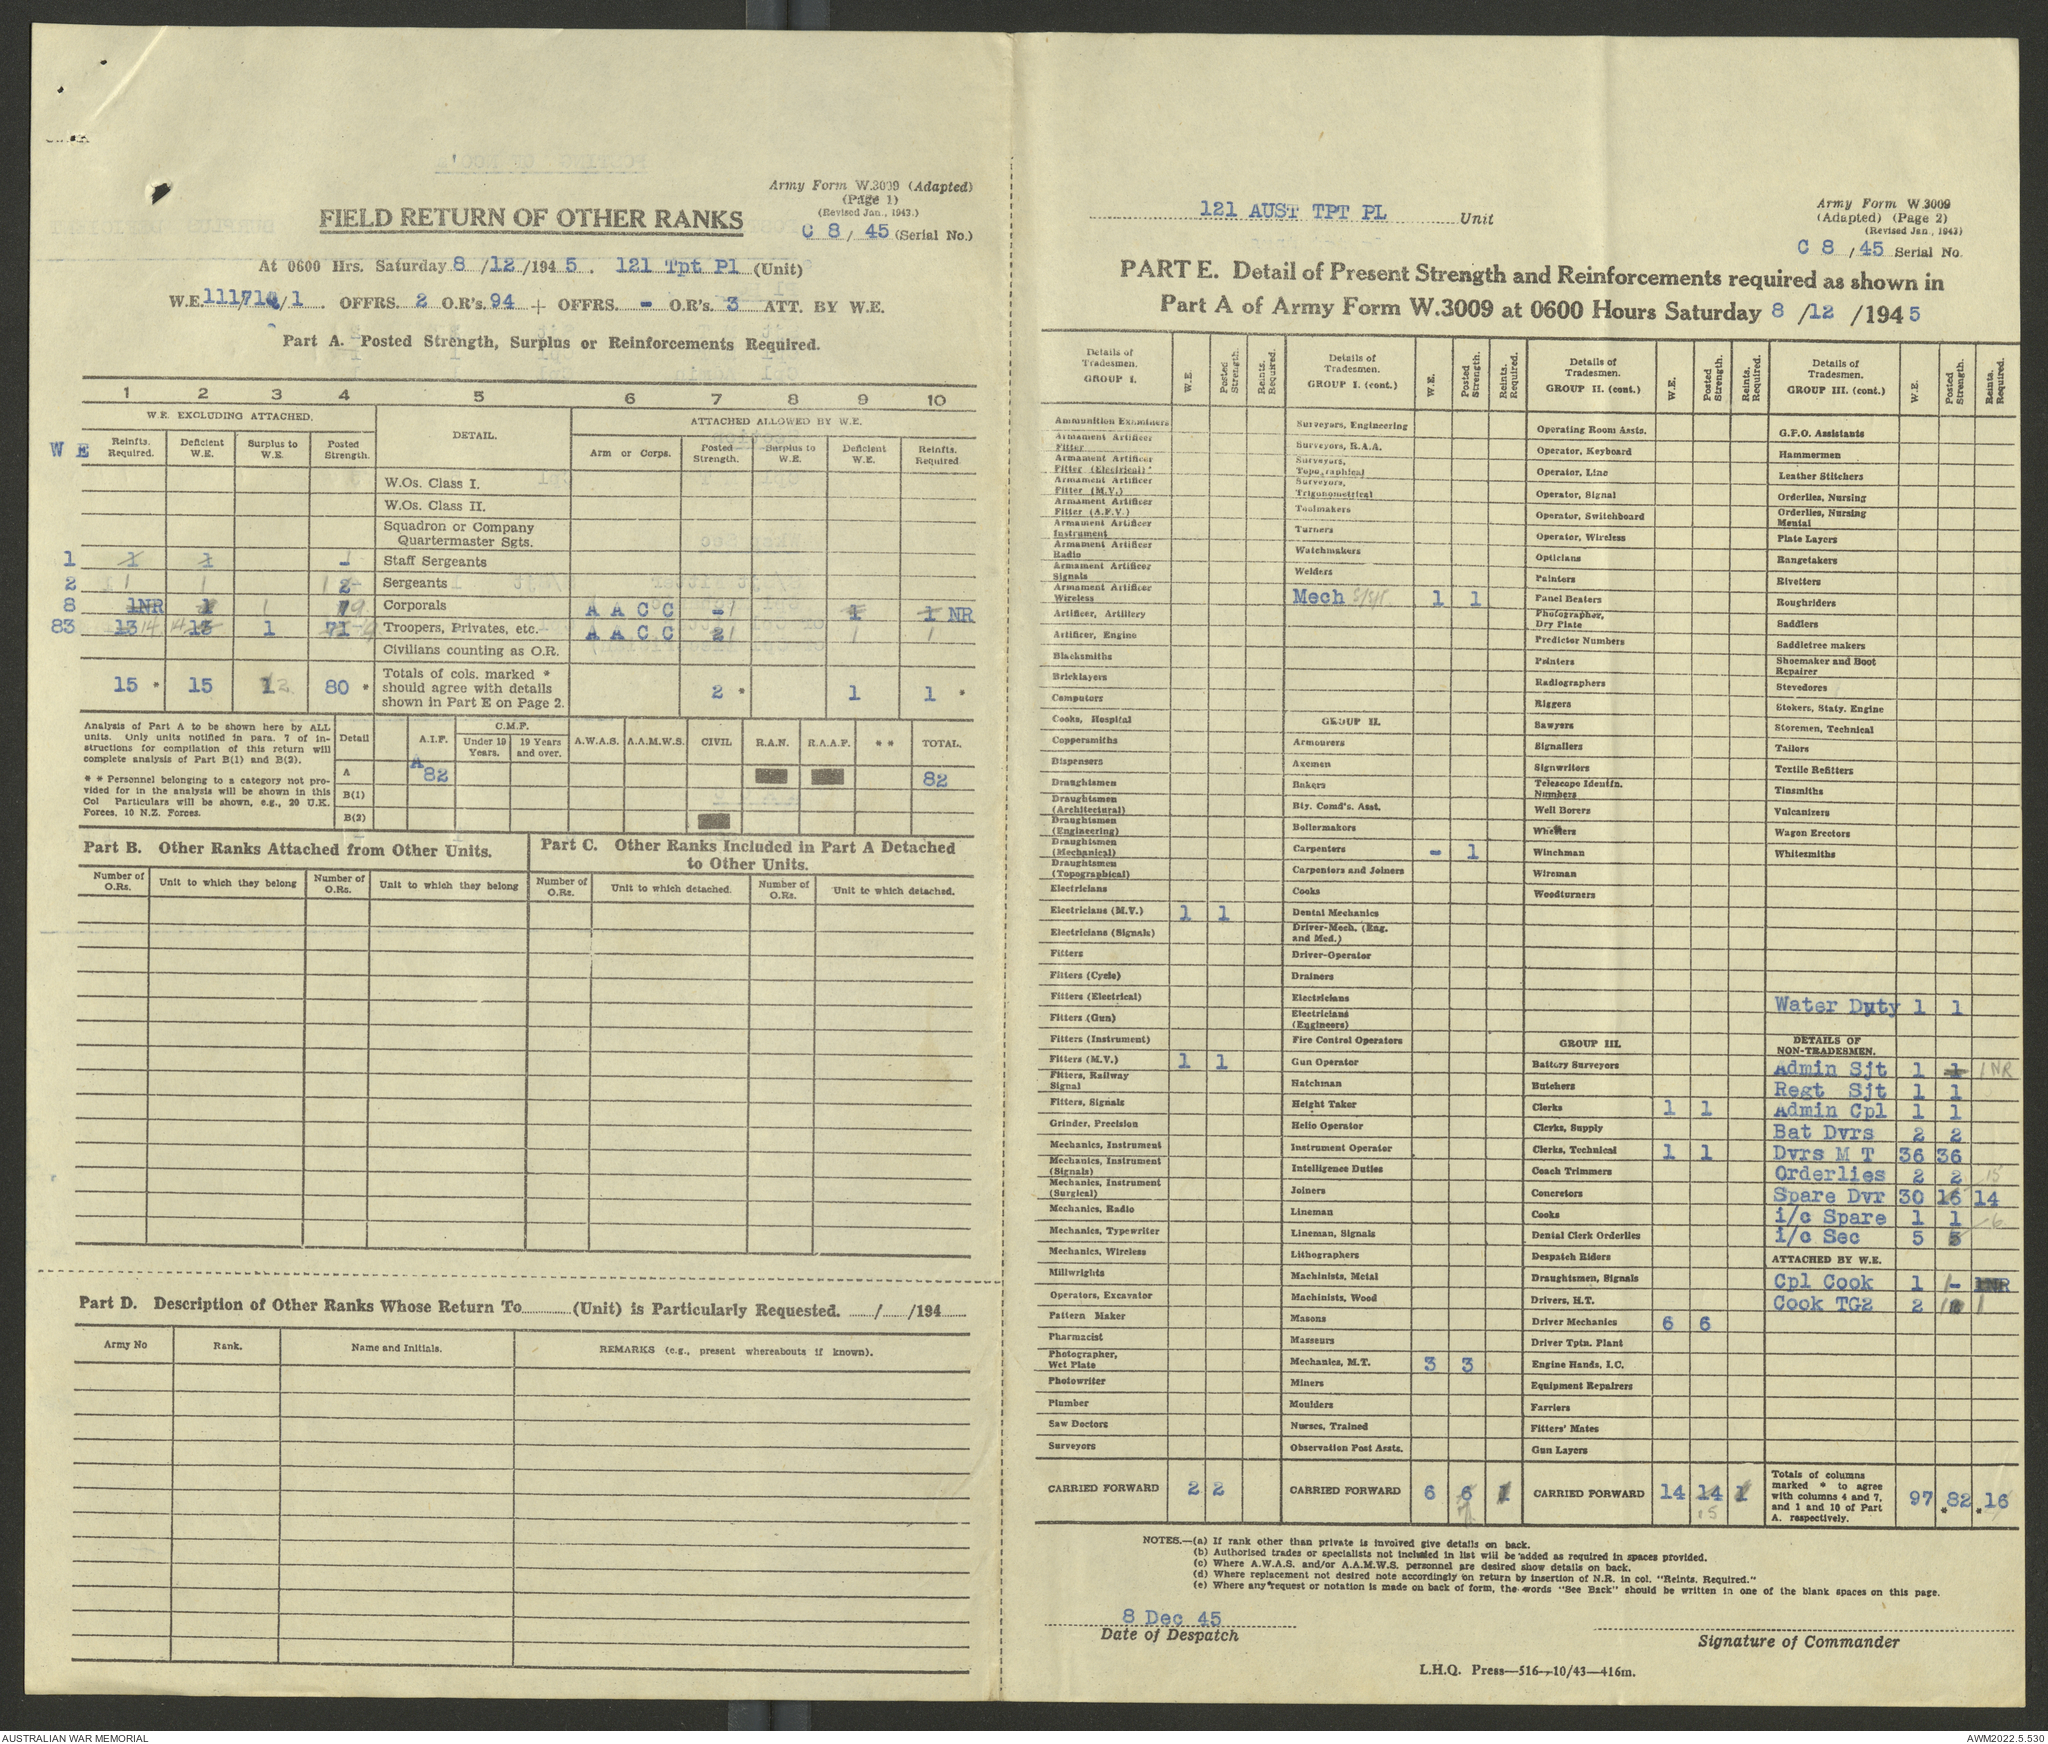 Army Form W.3009 (Adapted)
(Page 1)
(Revised Jan., 1943.)
FIELD RETURN OF OTHER RANKS
C 8 / 45 (Serial No.)
At 0600 Hrs. Saturday 8 /12 /194 5 . 121 Tpt Pl (Unit)
OFFRS. 2 O.R's. 94 + OFFRS. - O.R's. 3 ATT. BY W.E.
Part A. Posted Strength, Surplus or Reinforcements Required.
1 2 3 4 5 6 7 8 9 10
W.E. EXCLUDING ATTACHED. DETAIL. ATTACHED ALLOWED BY W.E.
W E Reinfts. Required. Deficient W.E. Surplus to W.E. Posted Strength. Arm or Corps. Posted Strength. Surplus to W.E. Deficient W.E. Reinfts. Required
W.Os. Class I.
W.Os. Class II.
Squadron or Company
Quartermaster Sgts.
1 1 1 1 Staff Sergeants
2 1 1 2 Sergeants
8 1NR 1 1 Corporals A A C C - 1 1 NR
83 13 14 13 1 71 Troopers, Privates, etc. A A C C 2 1 1
Civilians counting as O.R.
15 * 15 80 * Totals of cols. marked *
should agree with details
shown in Part E on Page 2. 2 * 1 1 *
Analysis of Part A to be shown here by ALL
units. Only units notified in para. 7 of in-
structions for compilation of this return will
complete analysis of Part B(1) and B(2).
* * Personnel belonging to a category not pro-
vided for in the analysis will be shown in this
Col Particulars will be shown, e.g., 20 U.K.
Forces, 10 N.Z. Forces.
Detail A.I.F. C.M.F. Under 19 Years. 19 Years and over. A.W.A.S. A.A.M.W.S. CIVIL R.A.N. R.A.A.F. * * TOTAL.
A A 82 82
B(1)
B(2)
Part B. Other Ranks Attached from Other Units.
Number of O.Rs. Unit to which they belong Number of O.Rs. Unit to which they belong
Part C. Other Ranks Included in Part A Detached
to Other Units.
Number of O.Rs. Unit to which detached. Number of O.Rs. Unit to which detached.
Part D. Description of Other Ranks Whose Return To (Unit) is Particularly Requested. / /194
Army No Rank. Name and Initials. REMARKS (e.g., present whereabouts if known).
121 AUST TPT PL Unit
Army Form W.3009
(Adapted) (Page 2)
(Revised Jan., 1943)
C 8 / 45 Serial No.
PART E. Detail of Present Strength and Reinforcements required as shown in
Part A of Army Form W.3009 at 0600 Hours Saturday 8 /12 /194 5
Details of Tradesmen. GROUP I. W.E. Posted Strength. Reints. Required.
Ammunition Examiners
Armament Artificer Fitter
Armament Artificer Fitter (Electrical)
Armament Artificer Fitter (M.V.)
Armament Artificer Fitter (A.F.V.)
Armament Artificer Instrument
Armament Artificer Radio
Armament Artificer Signals
Armament Artificer Wireless
Artificer, Artillery
Artificer, Engine
Blacksmiths
Bricklayers
Computors
Cooks, Hospital
Coppersmiths
Dispensers
Draughtsmen
Draughtsmen (Architectural)
Draughtsmen (Engineering)
Draughtsmen (Mechanical)
Draughtsmen (Topographical)
Electricians
Electricians (M.V.) 1 1
Electricians (Signals)
Fitters
Fitters (Cycle)
Fitters (Electrical)
Fitters (Gun)
Fitters (Instrument)
Fitters (M.V.) 1 1
Fitters, Railway Signal
Fitters, Signals
Grinder, Precision
Mechanics, Instrument
Mechanics, Instrument (Signals)
Mechanics, Instrument (Surgical)
Mechanics, Radio
Mechanics, Typewriter
Mechanics, Wireless
Millwrights
Operators, Excavator
Pattern Maker
Pharmacist
Photographer, Wet Plate
Photowriter
Plumber
Saw Doctors
Surveyors
CARRIED FORWARD 2 2
Details of Tradesmen. GROUP I. (cont.) W.E. Posted Strength. Reints. Required.
Surveyors, Engineering
Surveyors, R.A.A.
Surveyors, Topographical
Surveyors, Trigonometrical
Toolmakers
Turners
Watchmakers
Welders
Mech 1 1
GROUP II.
Armourers
Axemen
Bakers
Bty. Comd's. Asst.
Boilermakers
Carpenters - 1
Carpentors and Joiners
Cooks
Dental Mechanics
Driver-Mech. (Eng. and Med.)
Driver-Operator
Drainers
Electricians
Electricians (Engineers)
Fire Control Operators
Gun Operator
Hatchman
Height Taker
Helio Operator
Instrument Operator
Intelligence Duties
Joiners
Lineman
Lineman, Signals
Lithographers
Machinists, Metal
Machinists, Wood
Masons
Masseurs
Mechanics, M.T. 3 3
Miners
Moulders
Nurses, Trained
Observation Post Assts.
CARRIED FORWARD 6 6 1
Details of Tradesmen. GROUP II. (cont.) W.E. Posted Strength. Reints. Required.
Operating Room Assts.
Operator, Keyboard
Operator, Line
Operator, Signal
Operator, Switchboard
Operator, Wireless
Opticians
Painters
Panel Beaters
Photographer, Dry Plate
Predictor Numbers
Printers
Radiographers
Riggers
Sawyers
Signallers
Signwriters
Telescope Identfn. Numbers
Well Borers
Whetters
Winchman
Wireman
Woodturners
GROUP III.
Battery Surveyors
Butchers
Clerks 1 1
Clerks, Supply
Clerks, Technical 1 1
Coach Trimmers
Concretors
Cooks
Dental Clerk Orderlies
Despatch Riders
Draughtsmen, Signals
Drivers, H.T.
Driver Mechanics 6 6
Driver Tptn. Plant
Engine Hands, I.C.
Equipment Repairers
Farriers
Fitters' Mates
Gun Layers
CARRIED FORWARD 14 14 1
15
Details of Tradesmen. GROUP III. (cont.) W.E. Posted Strength. Reints. Required.
G.P.O. Assistants
Hammermen
Leather Stitchers
Orderlies, Nursing
Orderlies, Nursing Mental
Plate Layers
Rangetakers
Rivetters
Roughriders
Saddlers
Saddletree makers
Shoemaker and Boot Repairer
Stevedores
Stokers, Staty. Engine
Storemen, Technical
Tailors
Textile Refitters
Tinsmiths
Vulcanizers
Wagon Erectors
Whitesmiths
Water Duty 1 1
DETAILS OF NON-TRADESMEN.
Admin Sjt 1 1 1 NR
Regt Sjt 1 1
Admin Cpl 1 1
Bat Dvrs 2 2
Dvrs M T 36 36
Orderlies 2 2 15
Spare Dvr 30 16 14
i/c Spare 1 1
i/c Sec 5 5
ATTACHED BY W.E.
Cpl Cook 1 - 1NR
Cook TG2 2 1
Totals of columns marked * to agree with columns 4 and 7, and 1 and 10 of Part A. respectively. 97 * 82 * 16
NOTES.—(a) If rank other than private is involved give details on back.
(b) Authorised trades or specialists not included in list will be added as required in spaces provided.
(c) Where A.W.A.S. and/or A.A.M.W.S. personnel are desired show details on back.
(d) Where replacement not desired note accordingly on return by insertion of N.R. in col. "Reints. Required."
(e) Where any request or notation is made on back of form, the words "See Back" should be written in one of the blank spaces on this page.
8 Dec 45
Date of Despatch
Signature of Commander
L.H.Q. Press—516—10/43—416m.
AUSTRALIAN WAR MEMORIAL
AWM2022.5.530